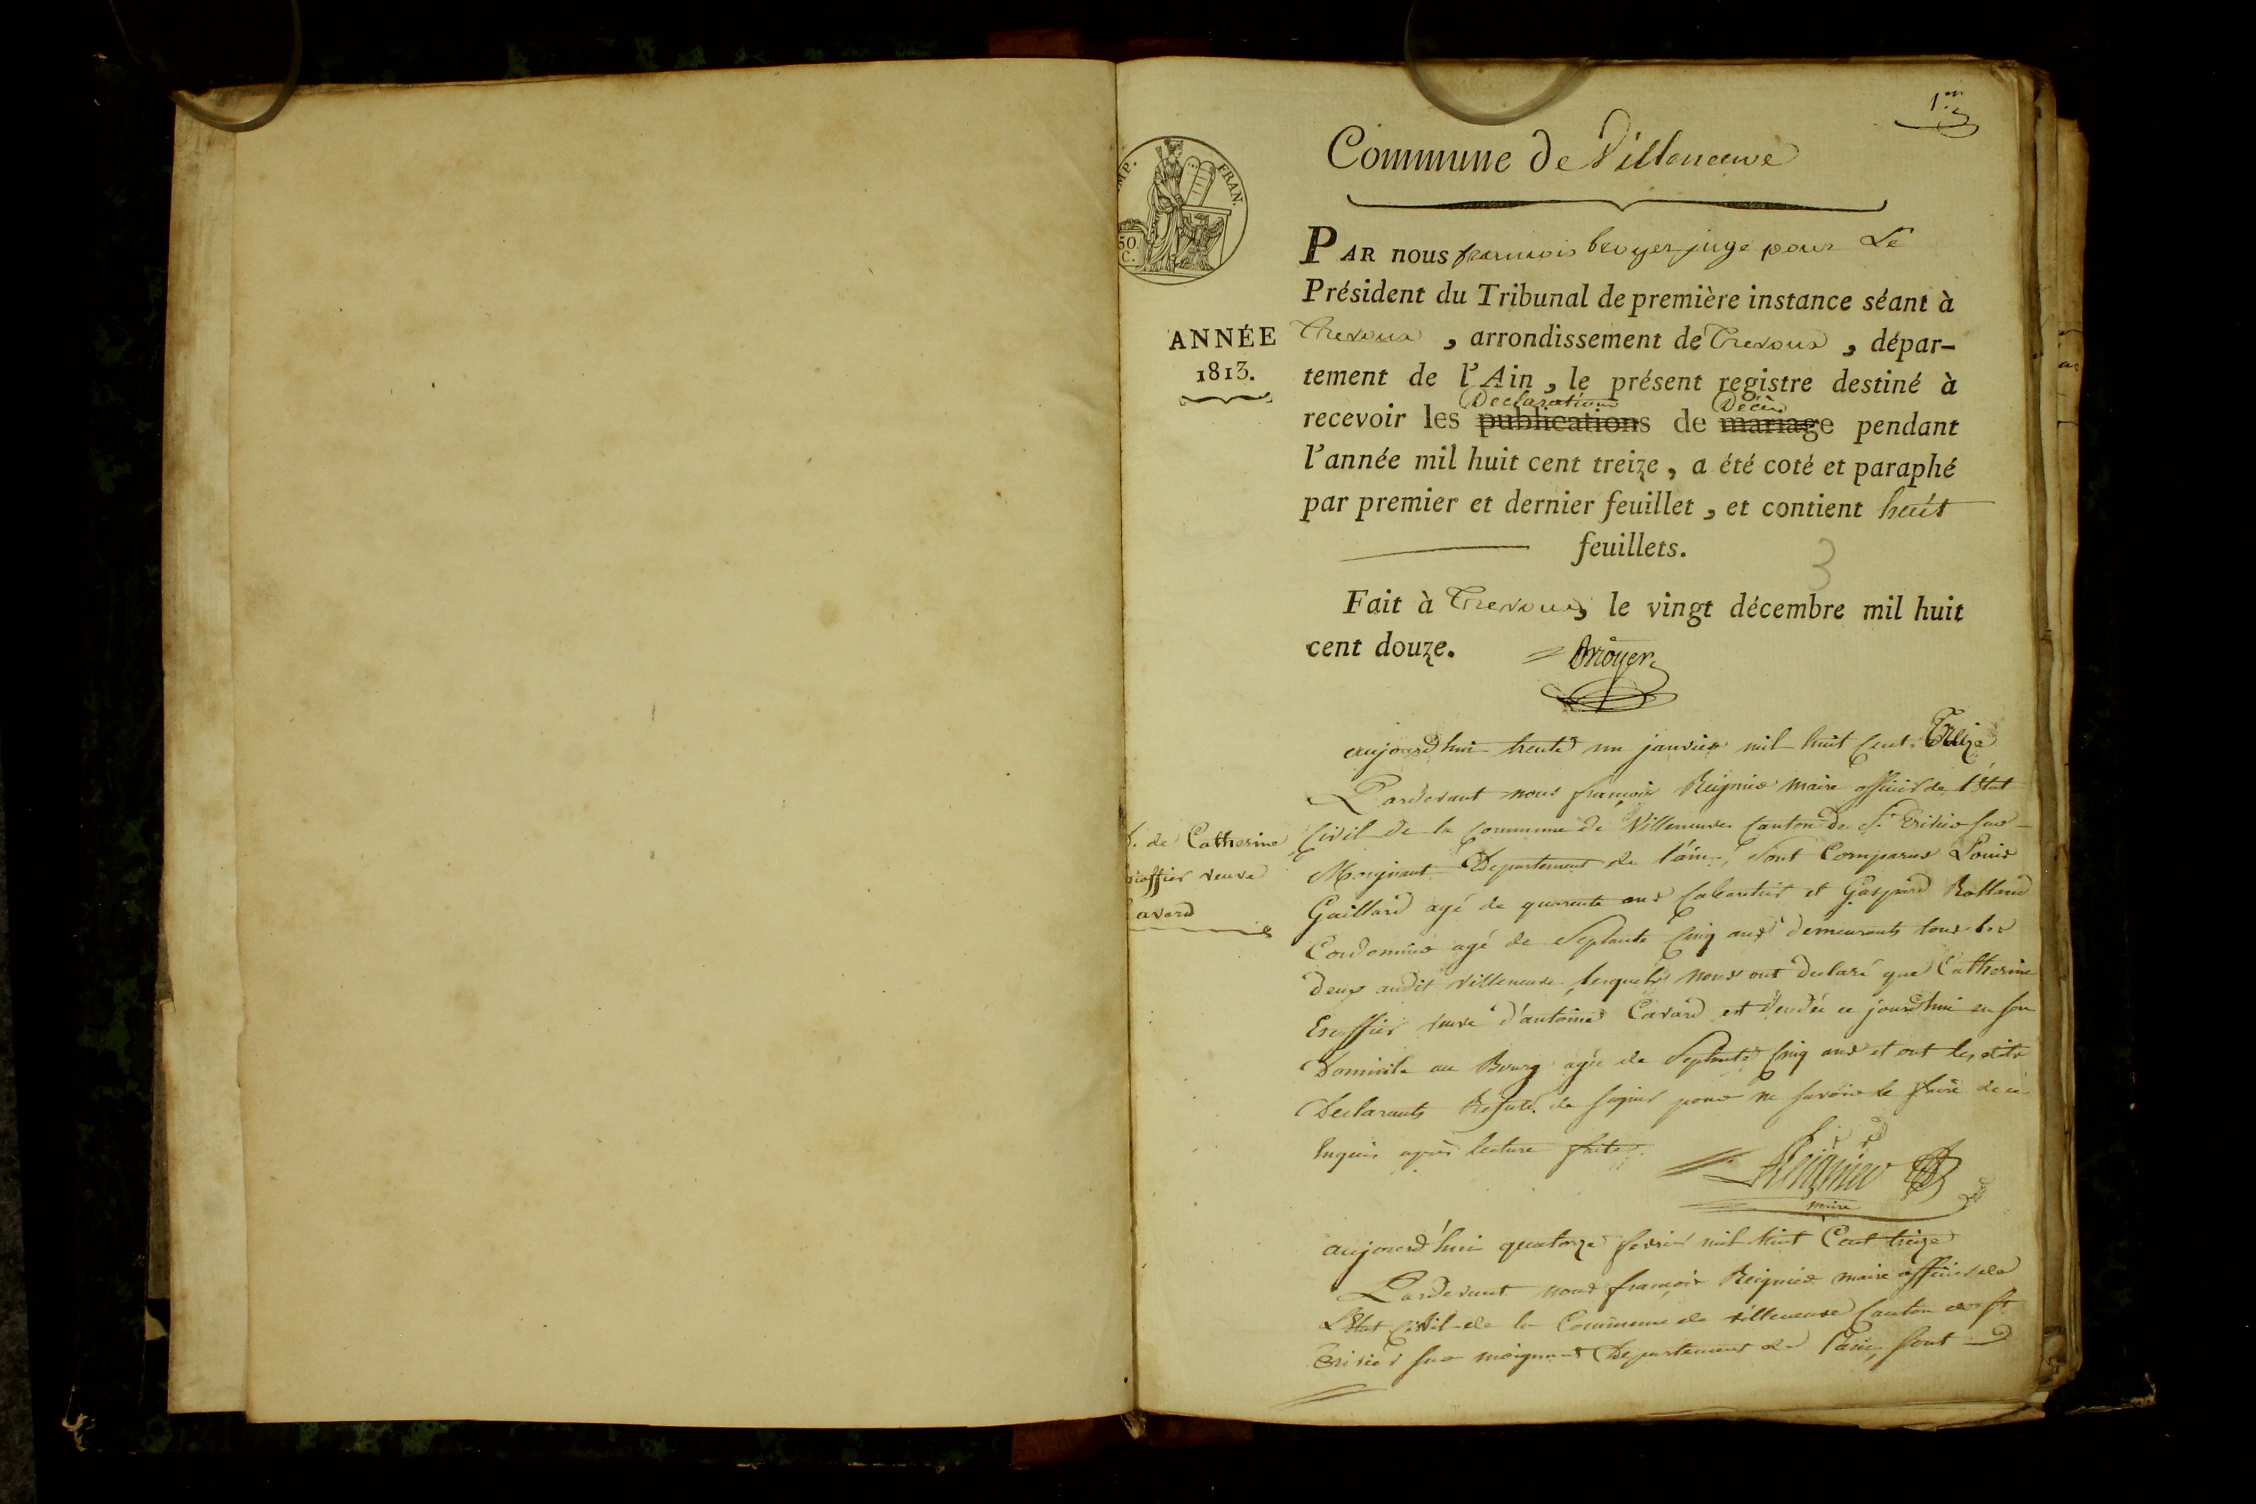 1.er
Commune de Villeneuve
MP. FRAN.
50
C.
PAR nous francois broyer juge pour Le
Président du Tribunal de première instance séant à
ANNÉE
1813.
Trevoux, arrondissement de Trevoux, dépar-
tement de l'Ain, le présent registre destiné à
Declarations Décès
recevoir les publications de mariage pendant
l'année mil huit cent treize, a été coté et paraphé
par premier et dernier feuillet, et contient huit
feuillets.
3
Fait à Trevoux, le vingt décembre mil huit
cent douze.
Broyer
aujourd'hui trente un janvier mil huit Cent Treize
Pardevant nous françois Reignier maire officier de l'état
D. de Catherine
Escoffier veuve
Cavard
Civil de la Commune de Villeneuve Canton de St Trivier sur
Moignant Departement de l'ain, Sont Comparus Louis
Gaillard agé de quarante ans Cabaretier et Gaspard Rolland
Cordonnier agé de Septante Cinq ans demeurants tous les
deux audit villeneuve lesquels nous ont declaré que Catherine
Escoffier veuve d'antoine Cavard est décédée ce jourd'hui en son
Domicile au Bourg agée de Septante Cinq ans et ont les dits
Declarants de signer pour ne savoir le faire de ce
Enquis après lecture faite.
Reignier
maire
aujourd'hui quatorze fevrier mil huit Cent treize
Pardevant nous françois Reignier maire officier de
L'état Civil de la Commune de villeneuve Canton de St
Trivier sur moignant Departement de l'ain, sont